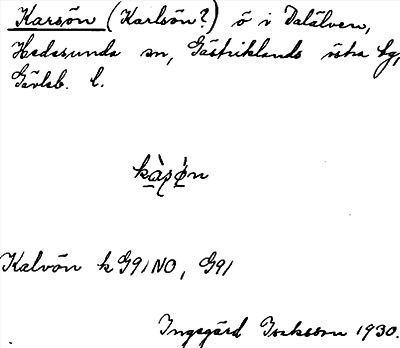 Karsön (Karlsön?) ö i Dalälven,
Hedesunda sn, Gästriklands östra tg,
Gävleb. l.
kàsø̀n
Kalvön k G91NO, G91
Ingegärd Isaksson 1930.